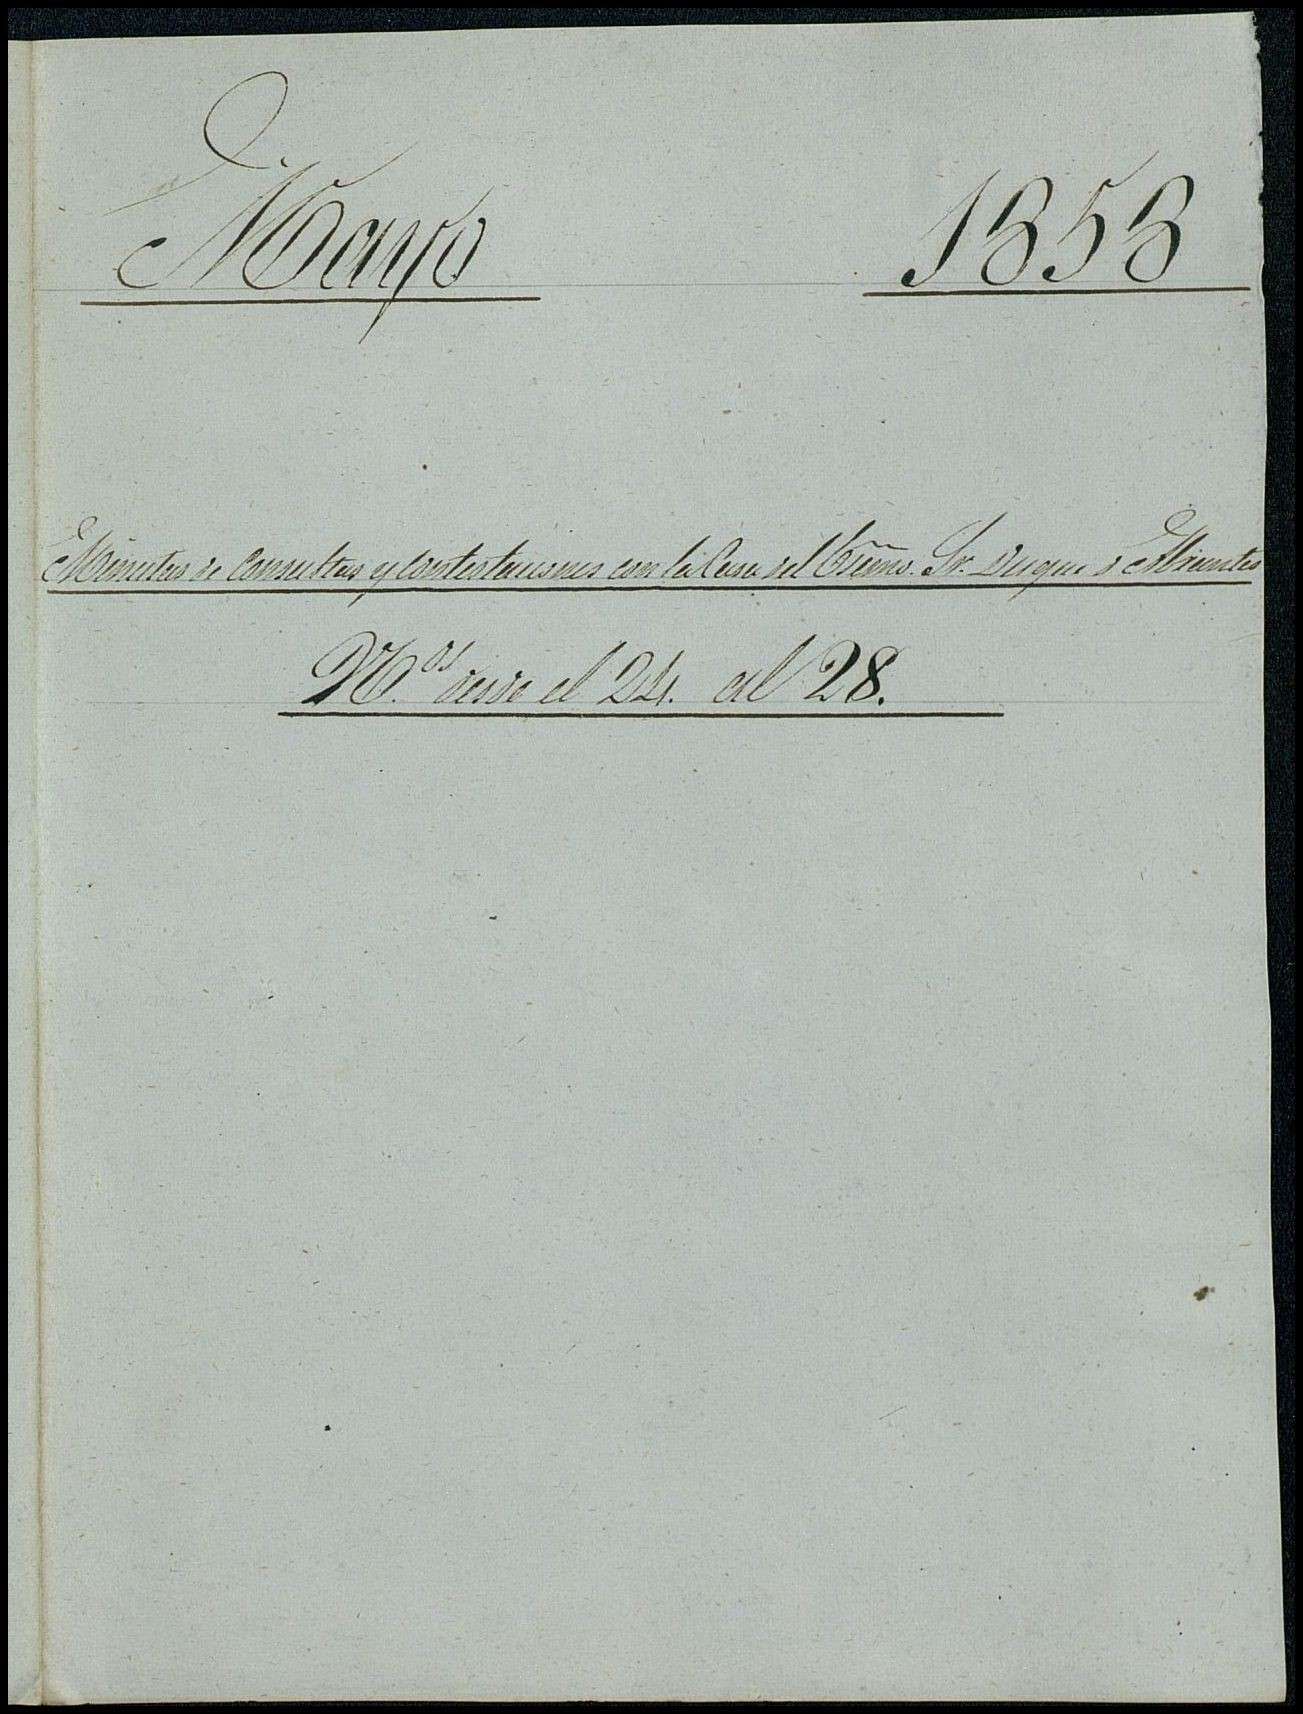 Mayo 1858
Minutas de Consultas y Contestaciones con la Casa del Excmo. Sr. Duque de Abrantes
N.os desde el 24. al 28.